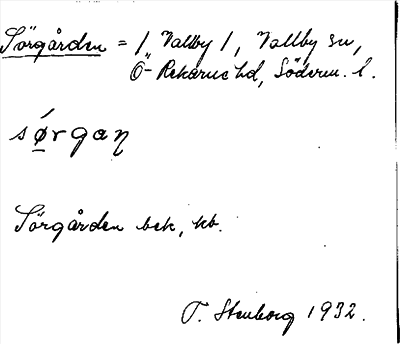 Sörgården = / Vallby /, Vallby sn,
Ö- Rekarne hd, Söderm. l.
sǿrgaŋ
Sörgården bek, kb.
T. Stenborg 1932.